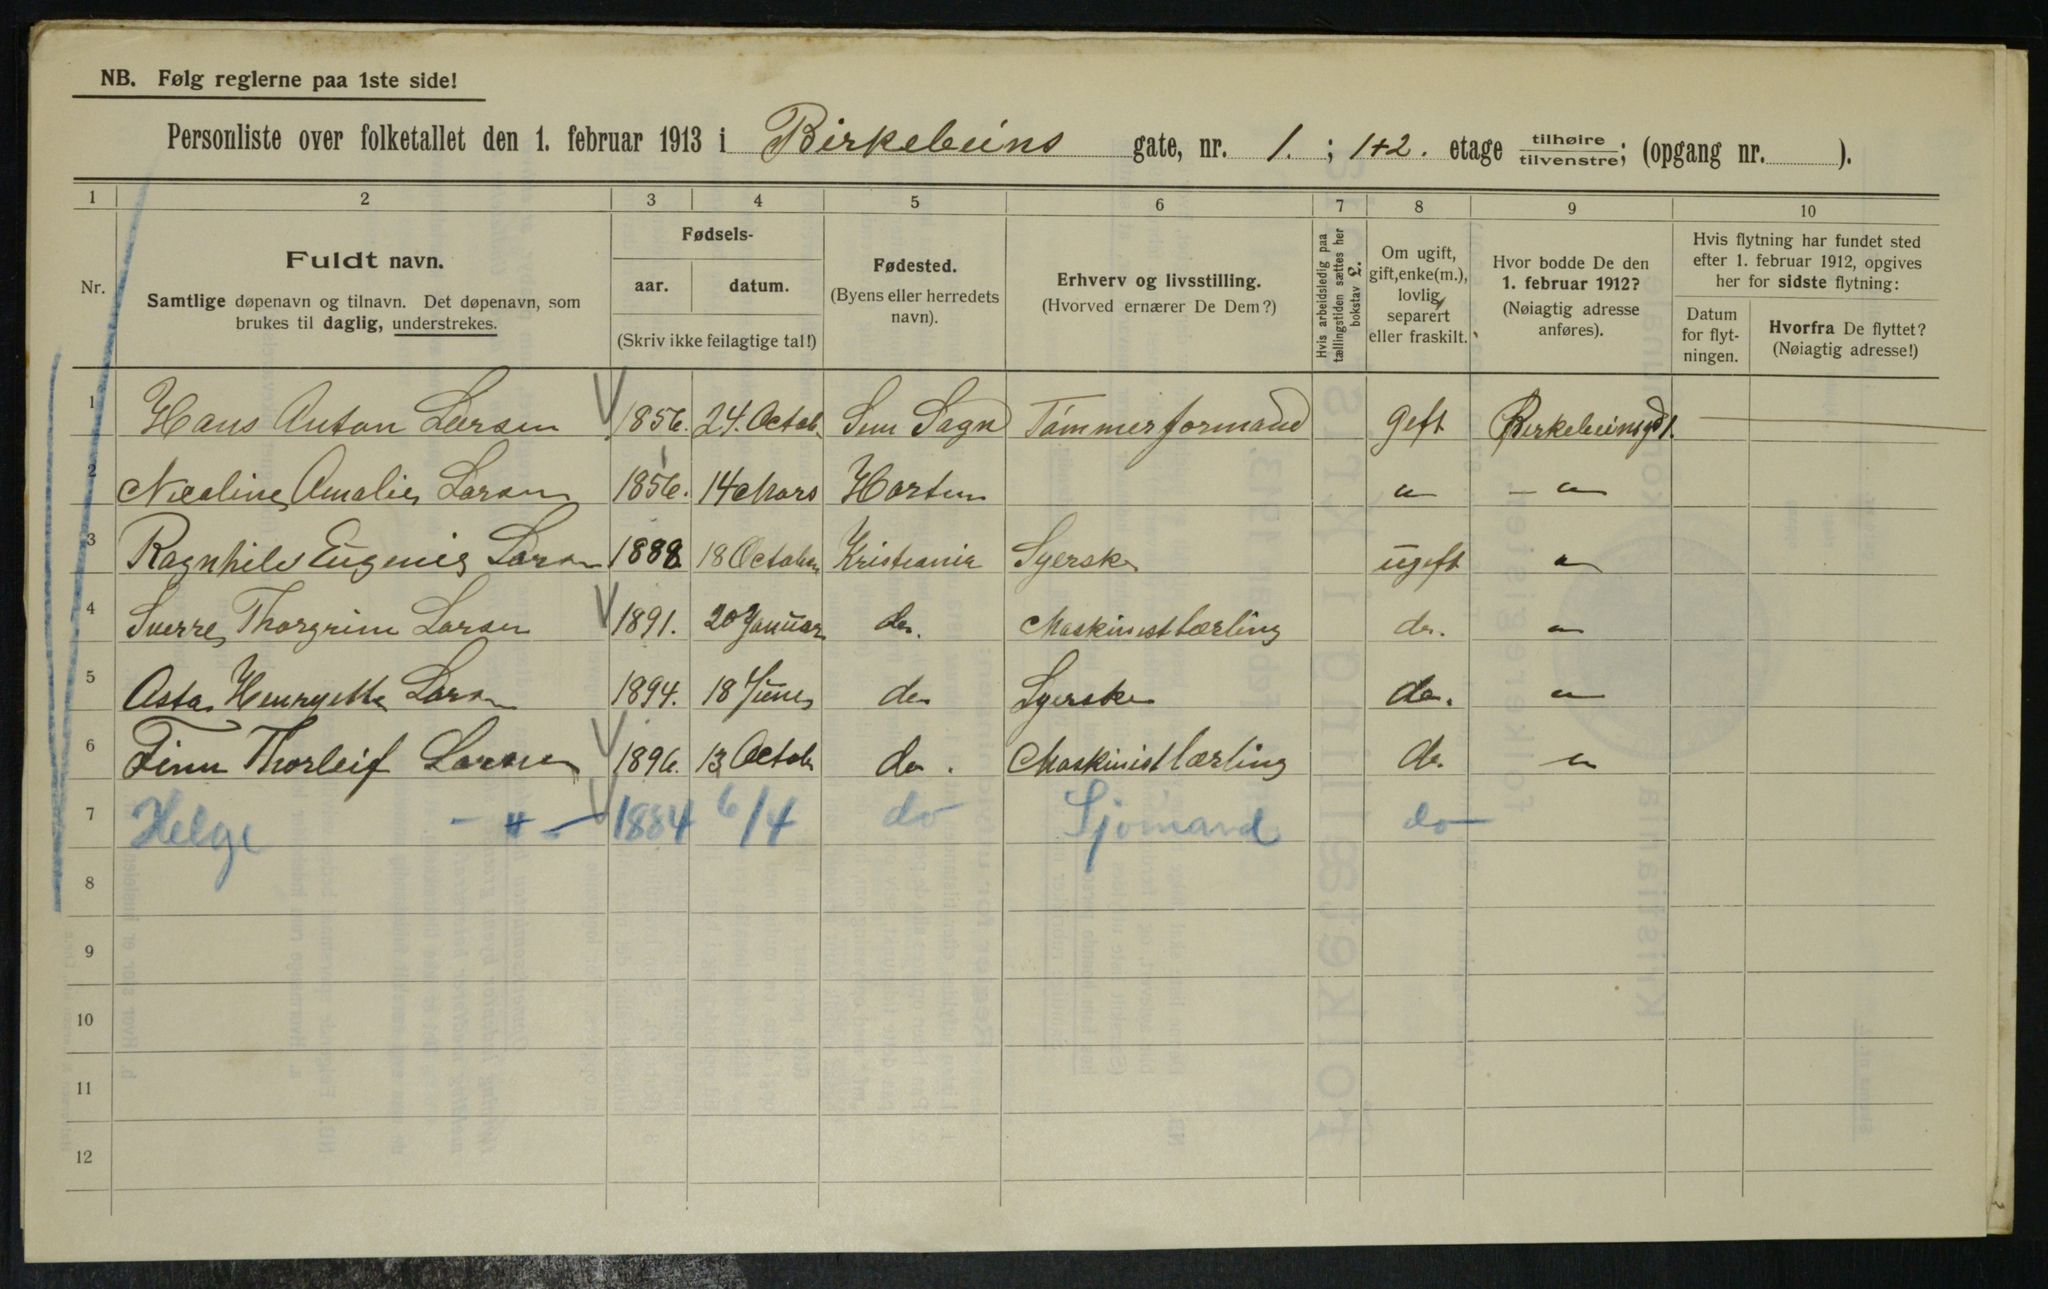 NB. Følg reglerne paa 1ste side!
Personliste over folketallet den 1. februar 1913 i Birkebeins gate, nr. 1. ; 1+2. etage tilhøire tilvenstre; (opgang nr. ).
1 2 3 4 5 6 7 8 9 10
Nr.
Fuldt navn.
Samtlige døpenavn og tilnavn. Det døpenavn, som
brukes til daglig, understrekes.
Fødsels-
aar. datum.
(Skriv ikke feilagtige tal!)
Fødested.
(Byens eller herredets
navn).
Erhverv og livsstilling.
(Hvorved ernærer De Dem?)
Hvis arbeidsledig paa
tællingstiden sættes her
bokstav L.
Om ugift,
gift, enke(m.),
lovlig
separert
eller fraskilt.
Hvor bodde De den
1. februar 1912?
(Nøiagtig adresse
anføres).
Hvis flytning har fundet sted
efter 1. februar 1912, opgives
her for sidste flytning:
Datum
for flyt-
ningen.
Hvorfra De flyttet?
(Nøiagtig adresse!)
1 Hans Anton Larsen 1856. 24. Octob. Sem Sogn Tømmerformand Gift Birkebeinsgd 1.
2 Nicoline Amalie Larsen 1856. 14 Mars Horten " - "
3 Ragnhild Eugenie Larsen 1888 18 October Kristiania Syerske ugift "
4 Sverre Thorgrim Larsen 1891. 20 Januar do. Maskinistlærling do. "
5 Asta Henryette Larsen 1894. 18 June do Syerske do. "
6 Finn Thorleif Larsen 1896. 13 Octob do. Maskinistlærling do. "
7 Helge - " - 1884 6/4 do Sjømand do
8
9
10
11
12